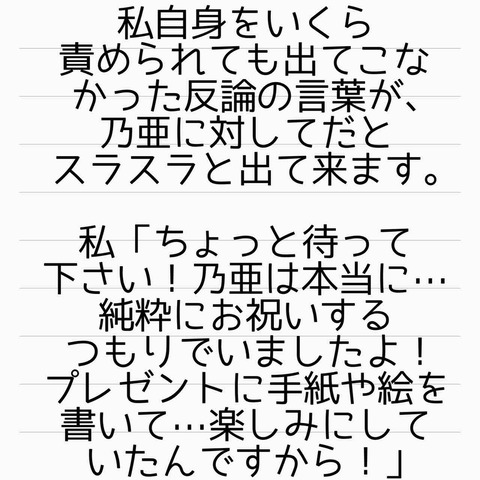 私自身をいくら
責められても出てこな
かった反論の言葉が、
乃亜に対してだと
スラスラと出て来ます。
私「ちょっと待って
下さい！乃亜は本当に…
純粋にお祝いする
つもりでいましたよ！
プレゼントに手紙や絵を
書いて…楽しみにして
いたんですから！」